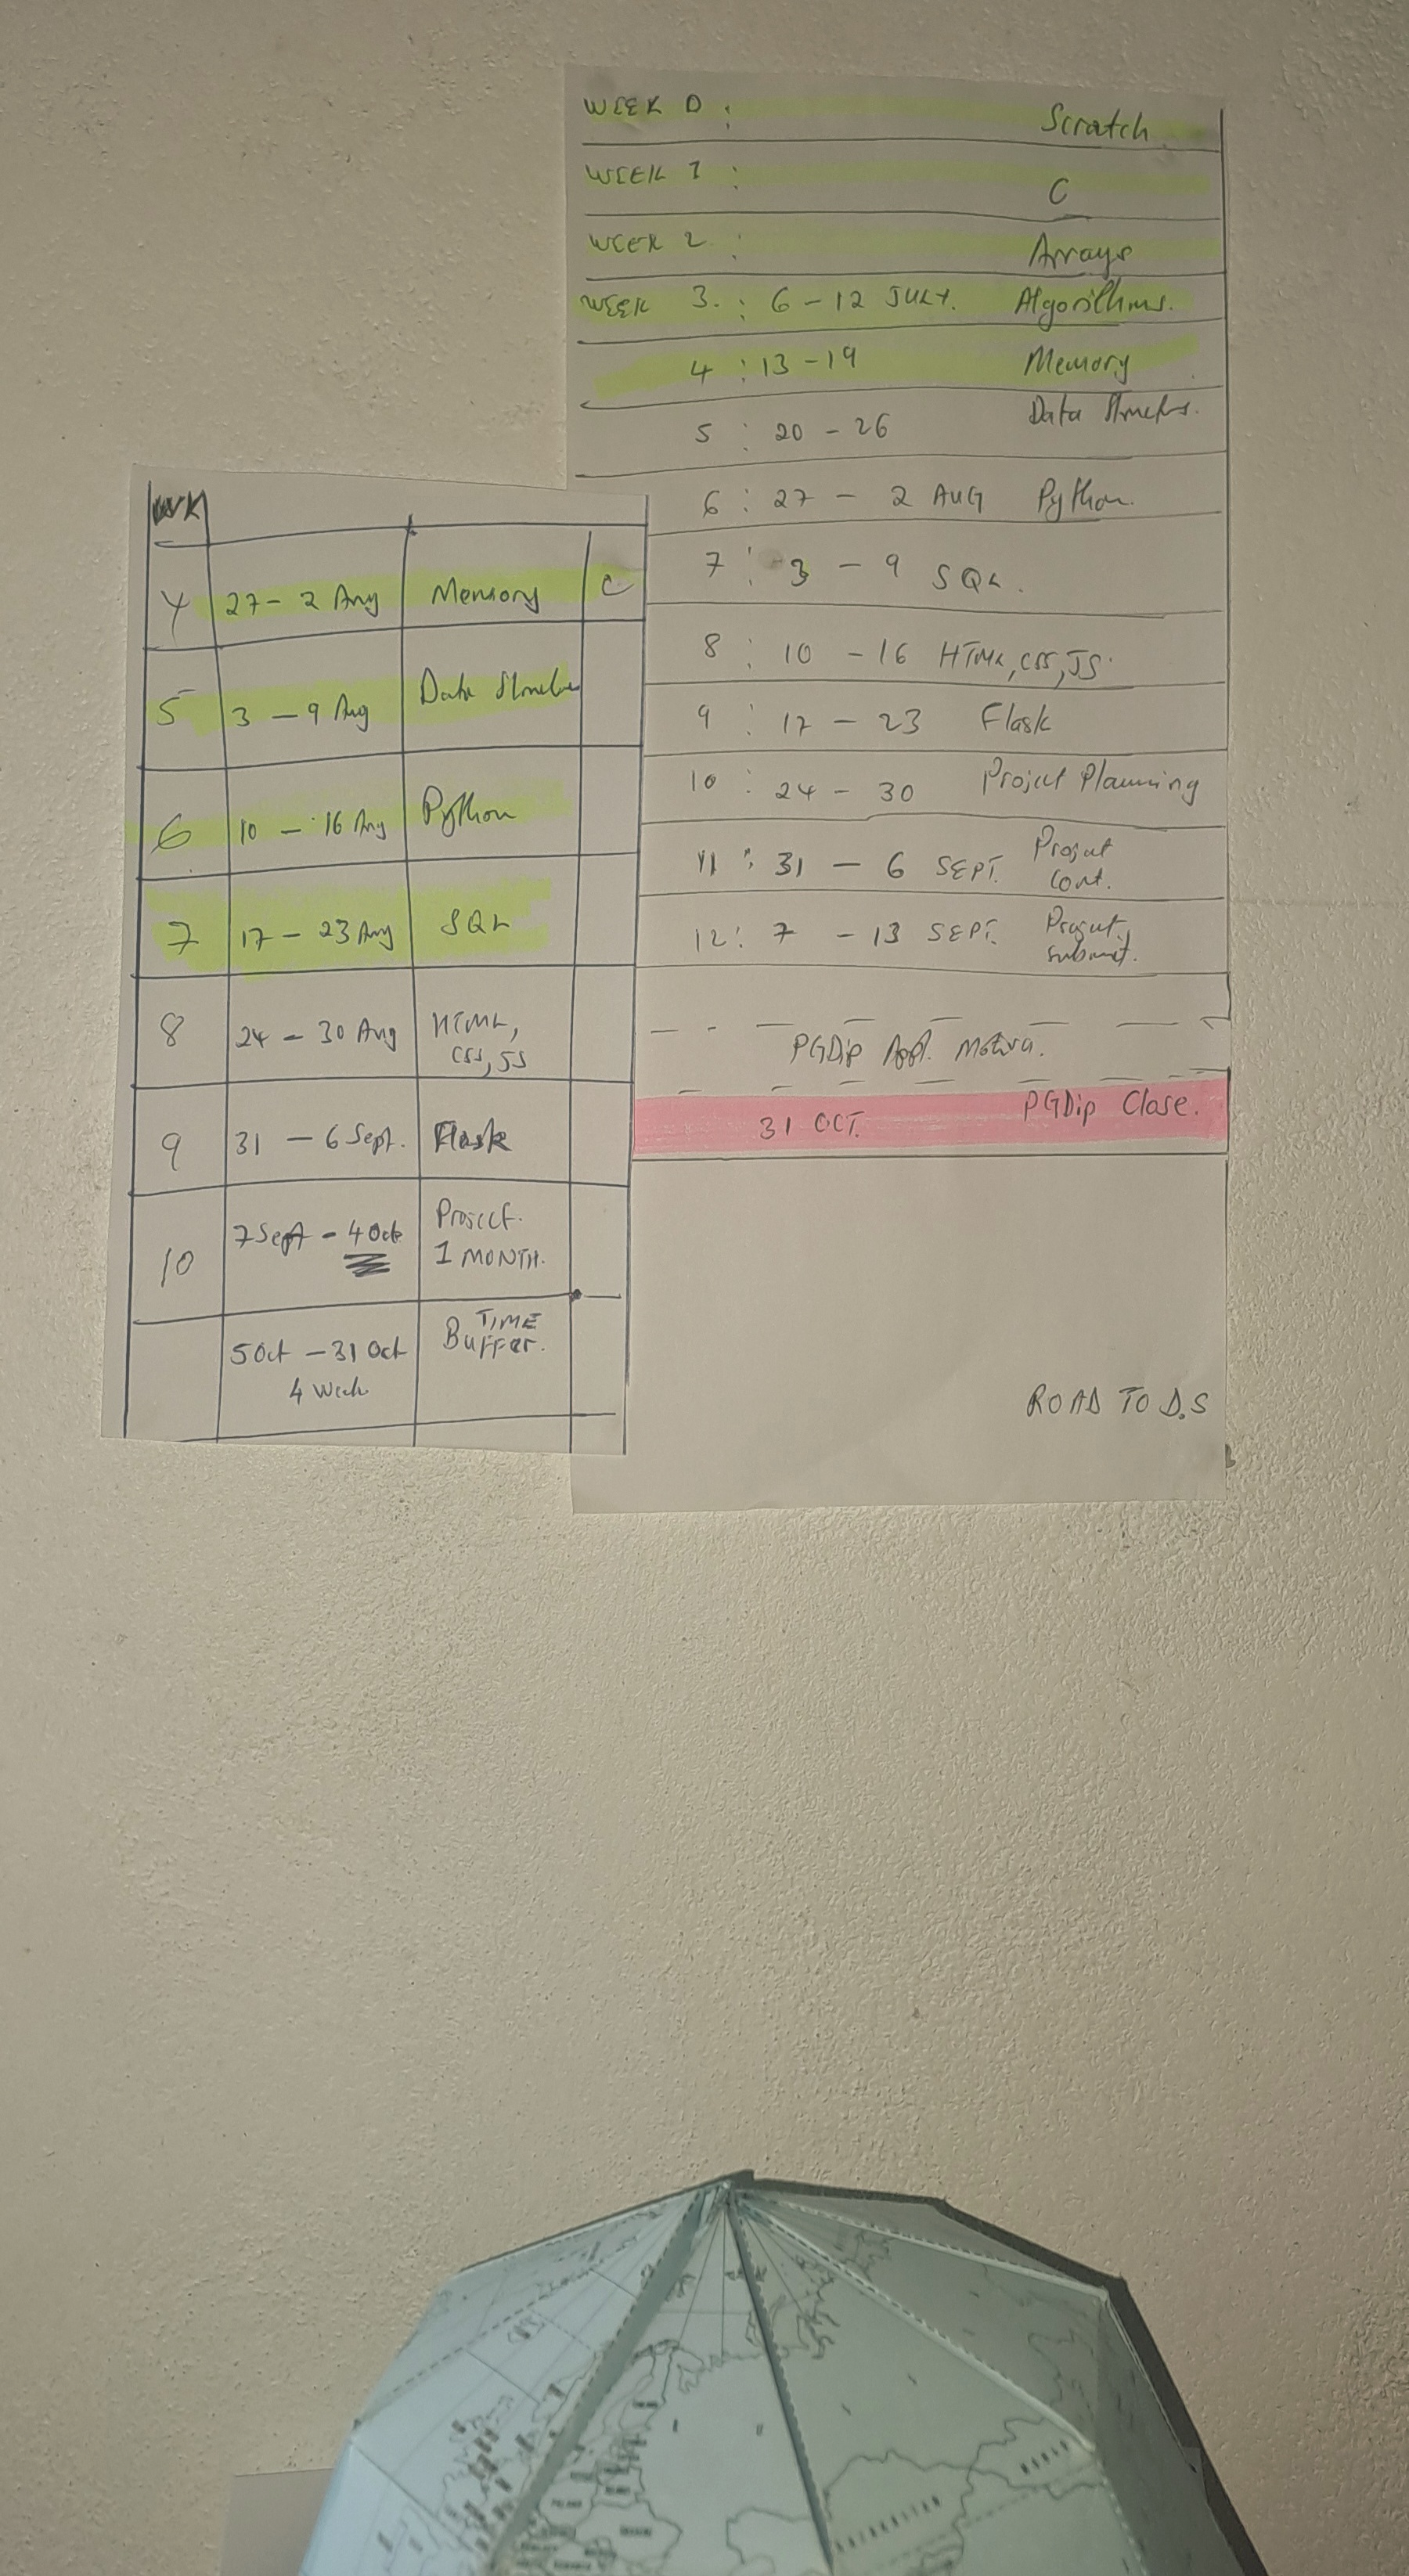 WEEK 0 : Scratch
WEEK 1 : C
WEEK 2 : Arrays
WEEK 3. : 6 - 12 JULY. Algorithms.
4 : 13 - 19 Memory
5 : 20 - 26 Data
6 : 27 - 2 AUG Python.
7 : 3 - 9 SQL.
8 : 10 - 16 HTML, CSS, JS.
9 : 17 - 23 Flask
10 : 24 - 30 Project Planning
11 : 31 - 6 SEPT. Project
Cont.
12 : 7 - 13 SEPT. Project
submit.
PGDip Appl. Motiva.
31 OCT. PGDip Close.
ROAD TO D.S
WK
4 27 - 2 Aug Memory C
5 3 - 9 Aug Data
6 10 - 16 Aug Python
7 17 - 23 Aug SQL
8 24 - 30 Aug HTML,
CSS, JS
9 31 - 6 Sept. Flask
10 7 Sept - 4 Oct Project.
1 MONTH.
5 Oct - 31 Oct TIME
Buffer.
4 Week
KAZAKHSTAN